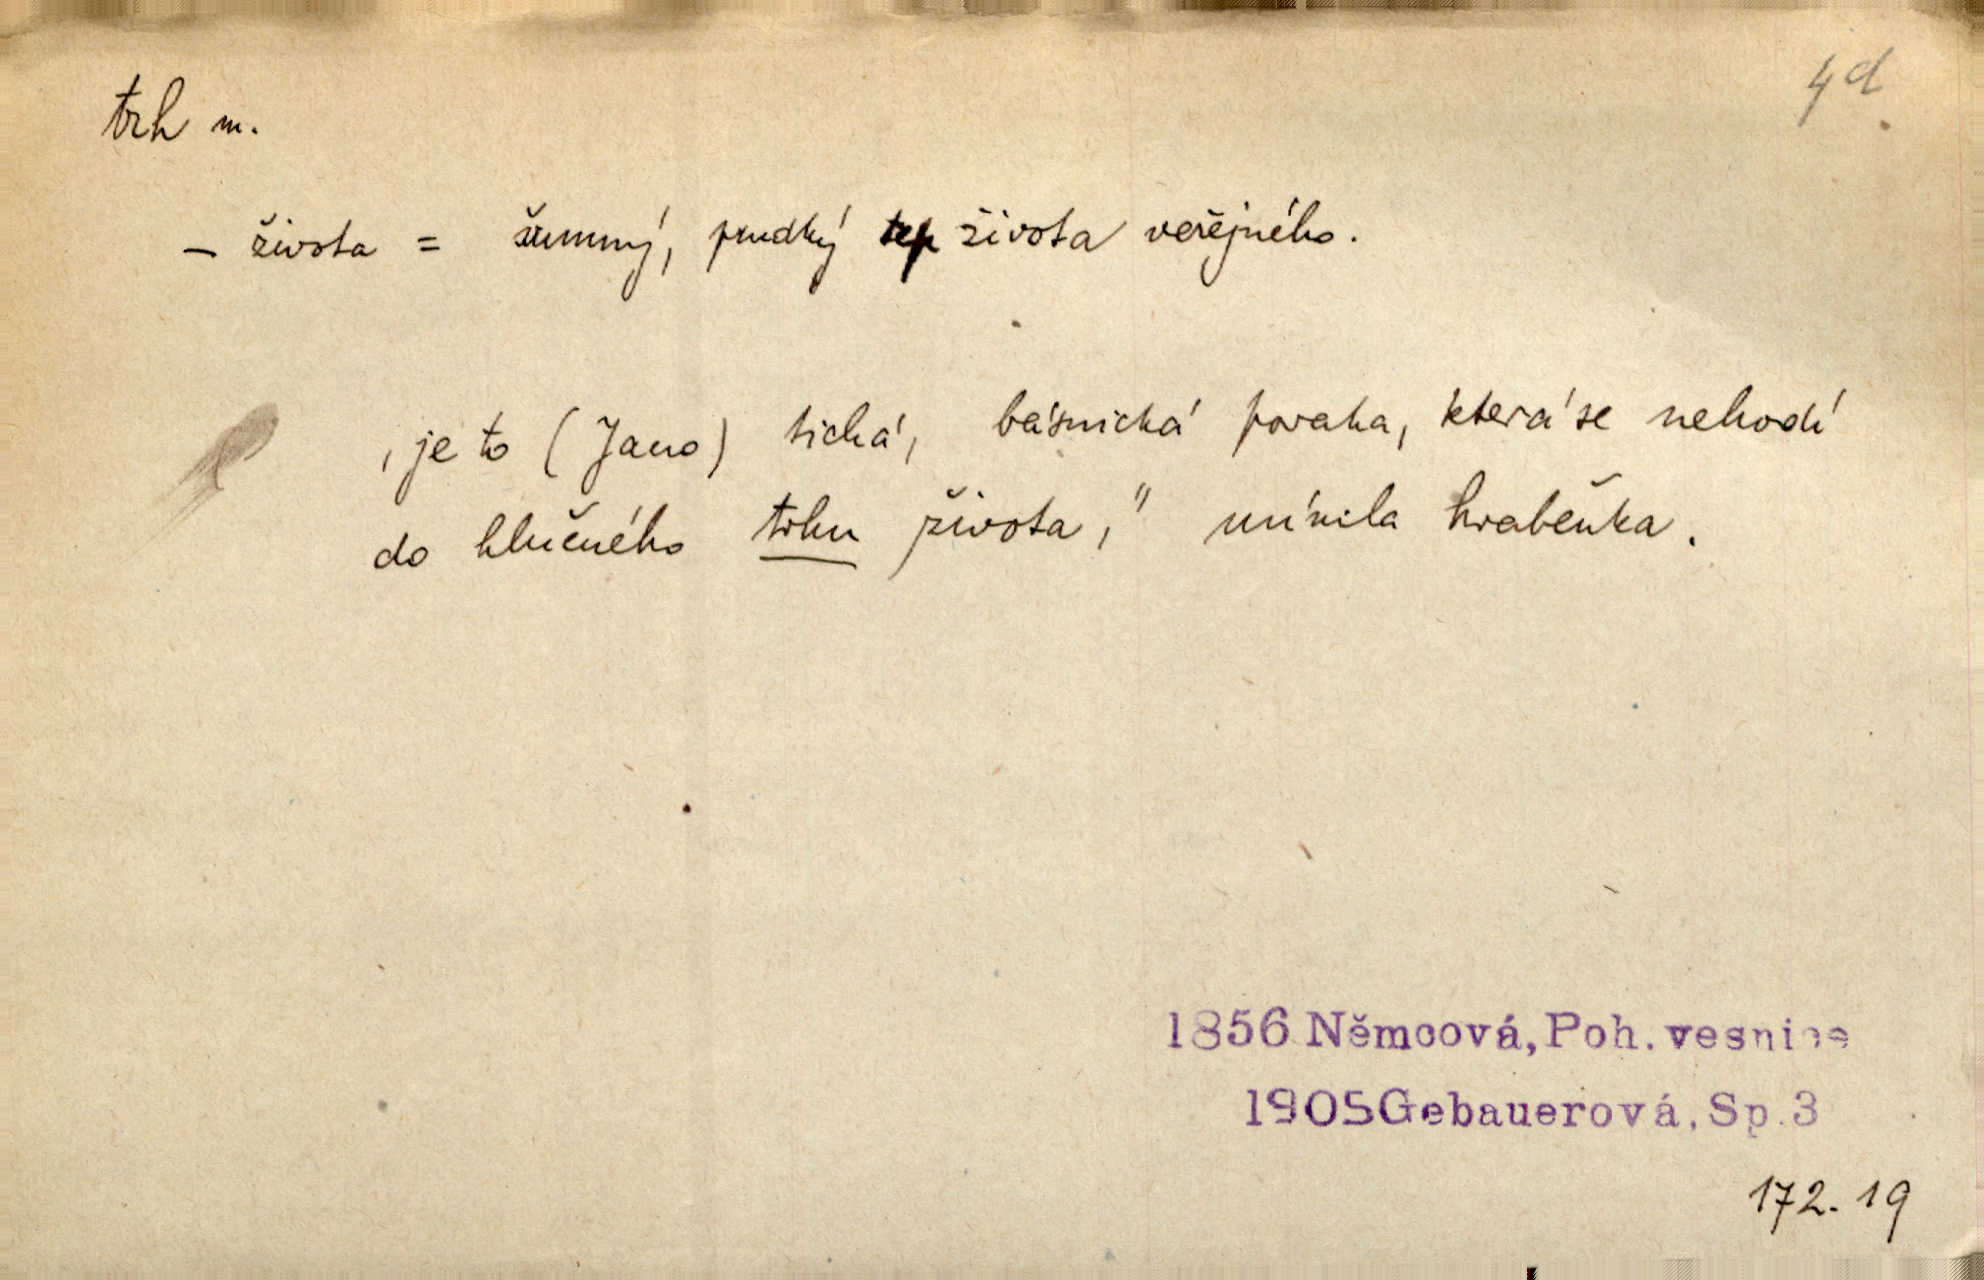 4d
trh m.
– života = šumný, prudký tep života veřejného.
, je to (Jano) tichá, básnická povaha, která se nehodí
do hlučného trhu života," mínila hraběnka.
1856 Němcová, Poh. vesnice
1905 Gebauerová, Sp. 3
172. 19